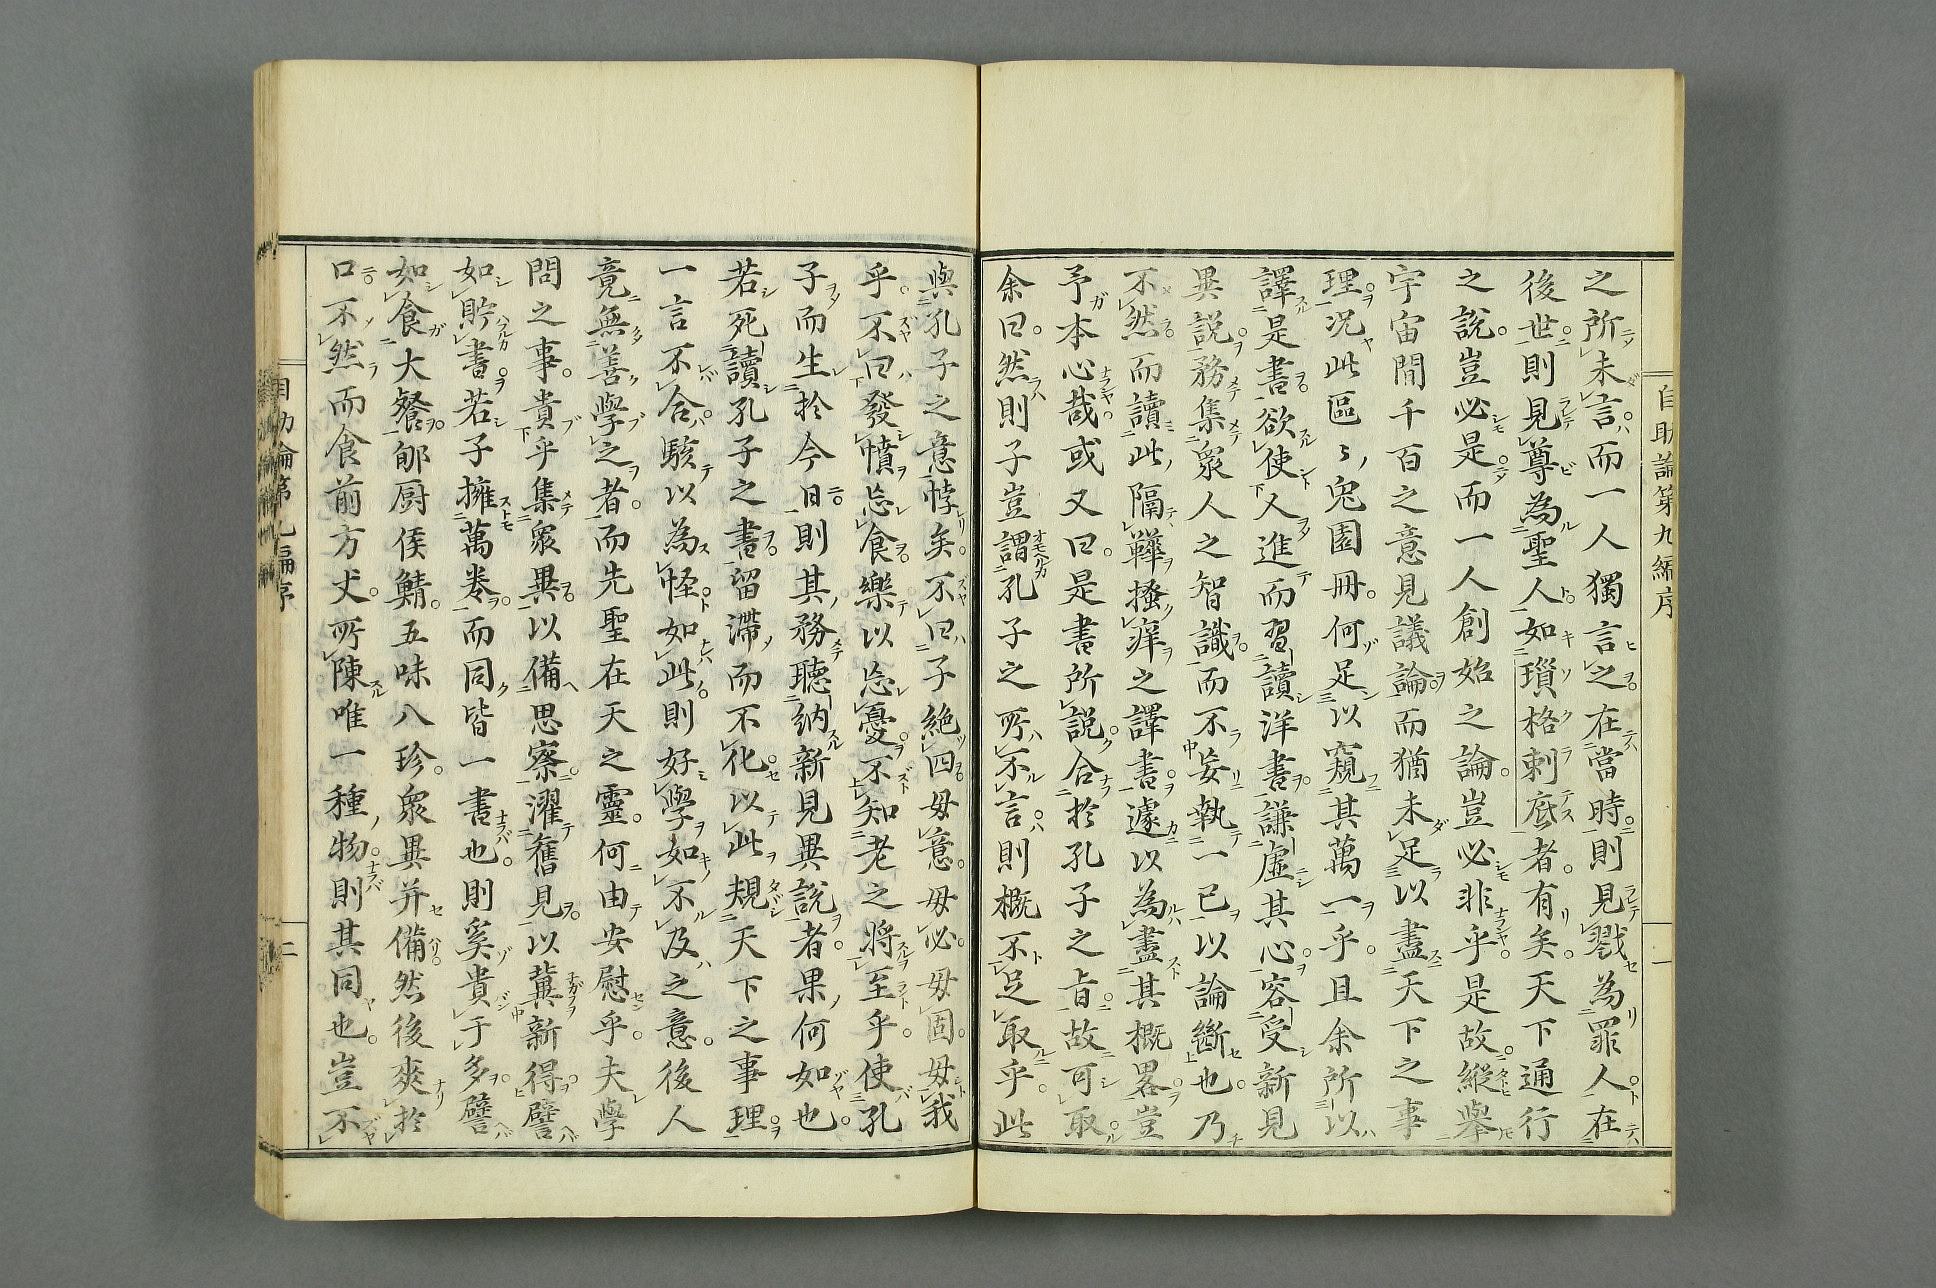 自助論第九編序
一
之所未言而一人獨言之在當時則見戮為罪人在
後世則見尊為聖人如瑣格剌底者有矣天下通行
之說豈必是而一人創始之論豈必非乎是故縱舉
宇宙間千百之意見議論而猶未足以盡天下之事
理况此區〻兔園冊何足以窺其萬一乎且余所以
譯是書欲使人進而習讀洋書謙虛其心容受新見
異說務集衆人之智識而不妄執一己以論斷也乃
不然而讀此隔鞾搔痒之譯書遽以為盡其概畧豈
予本心哉或又曰是書所說合於孔子之旨故可取
余曰然則子豈謂孔子之所不言則概不足取乎此
與孔子之意悖矣不曰子絶四毋意毋必毋固毋我
乎不曰發憤忘食樂以忘憂不知老之將至乎使孔
子而生於今日則其務聽納新見異說者果何如也
若死讀孔子之書留滯而不化以此規天下之事理
一言不合駭以為怪如此則好學如不及之意後人
竟無善學之者而先聖在天之靈何由安慰乎夫學
問之事貴乎集衆異以備思察濯舊見以冀新得譬
如貯書若子擁萬卷而同皆一書也則奚貴于多譬
如食大餐郇厨侯鯖五味八珍衆異并備然後爽於
口不然而食前方丈所陳唯一種物則其同也豈不
自助論第九編序
二